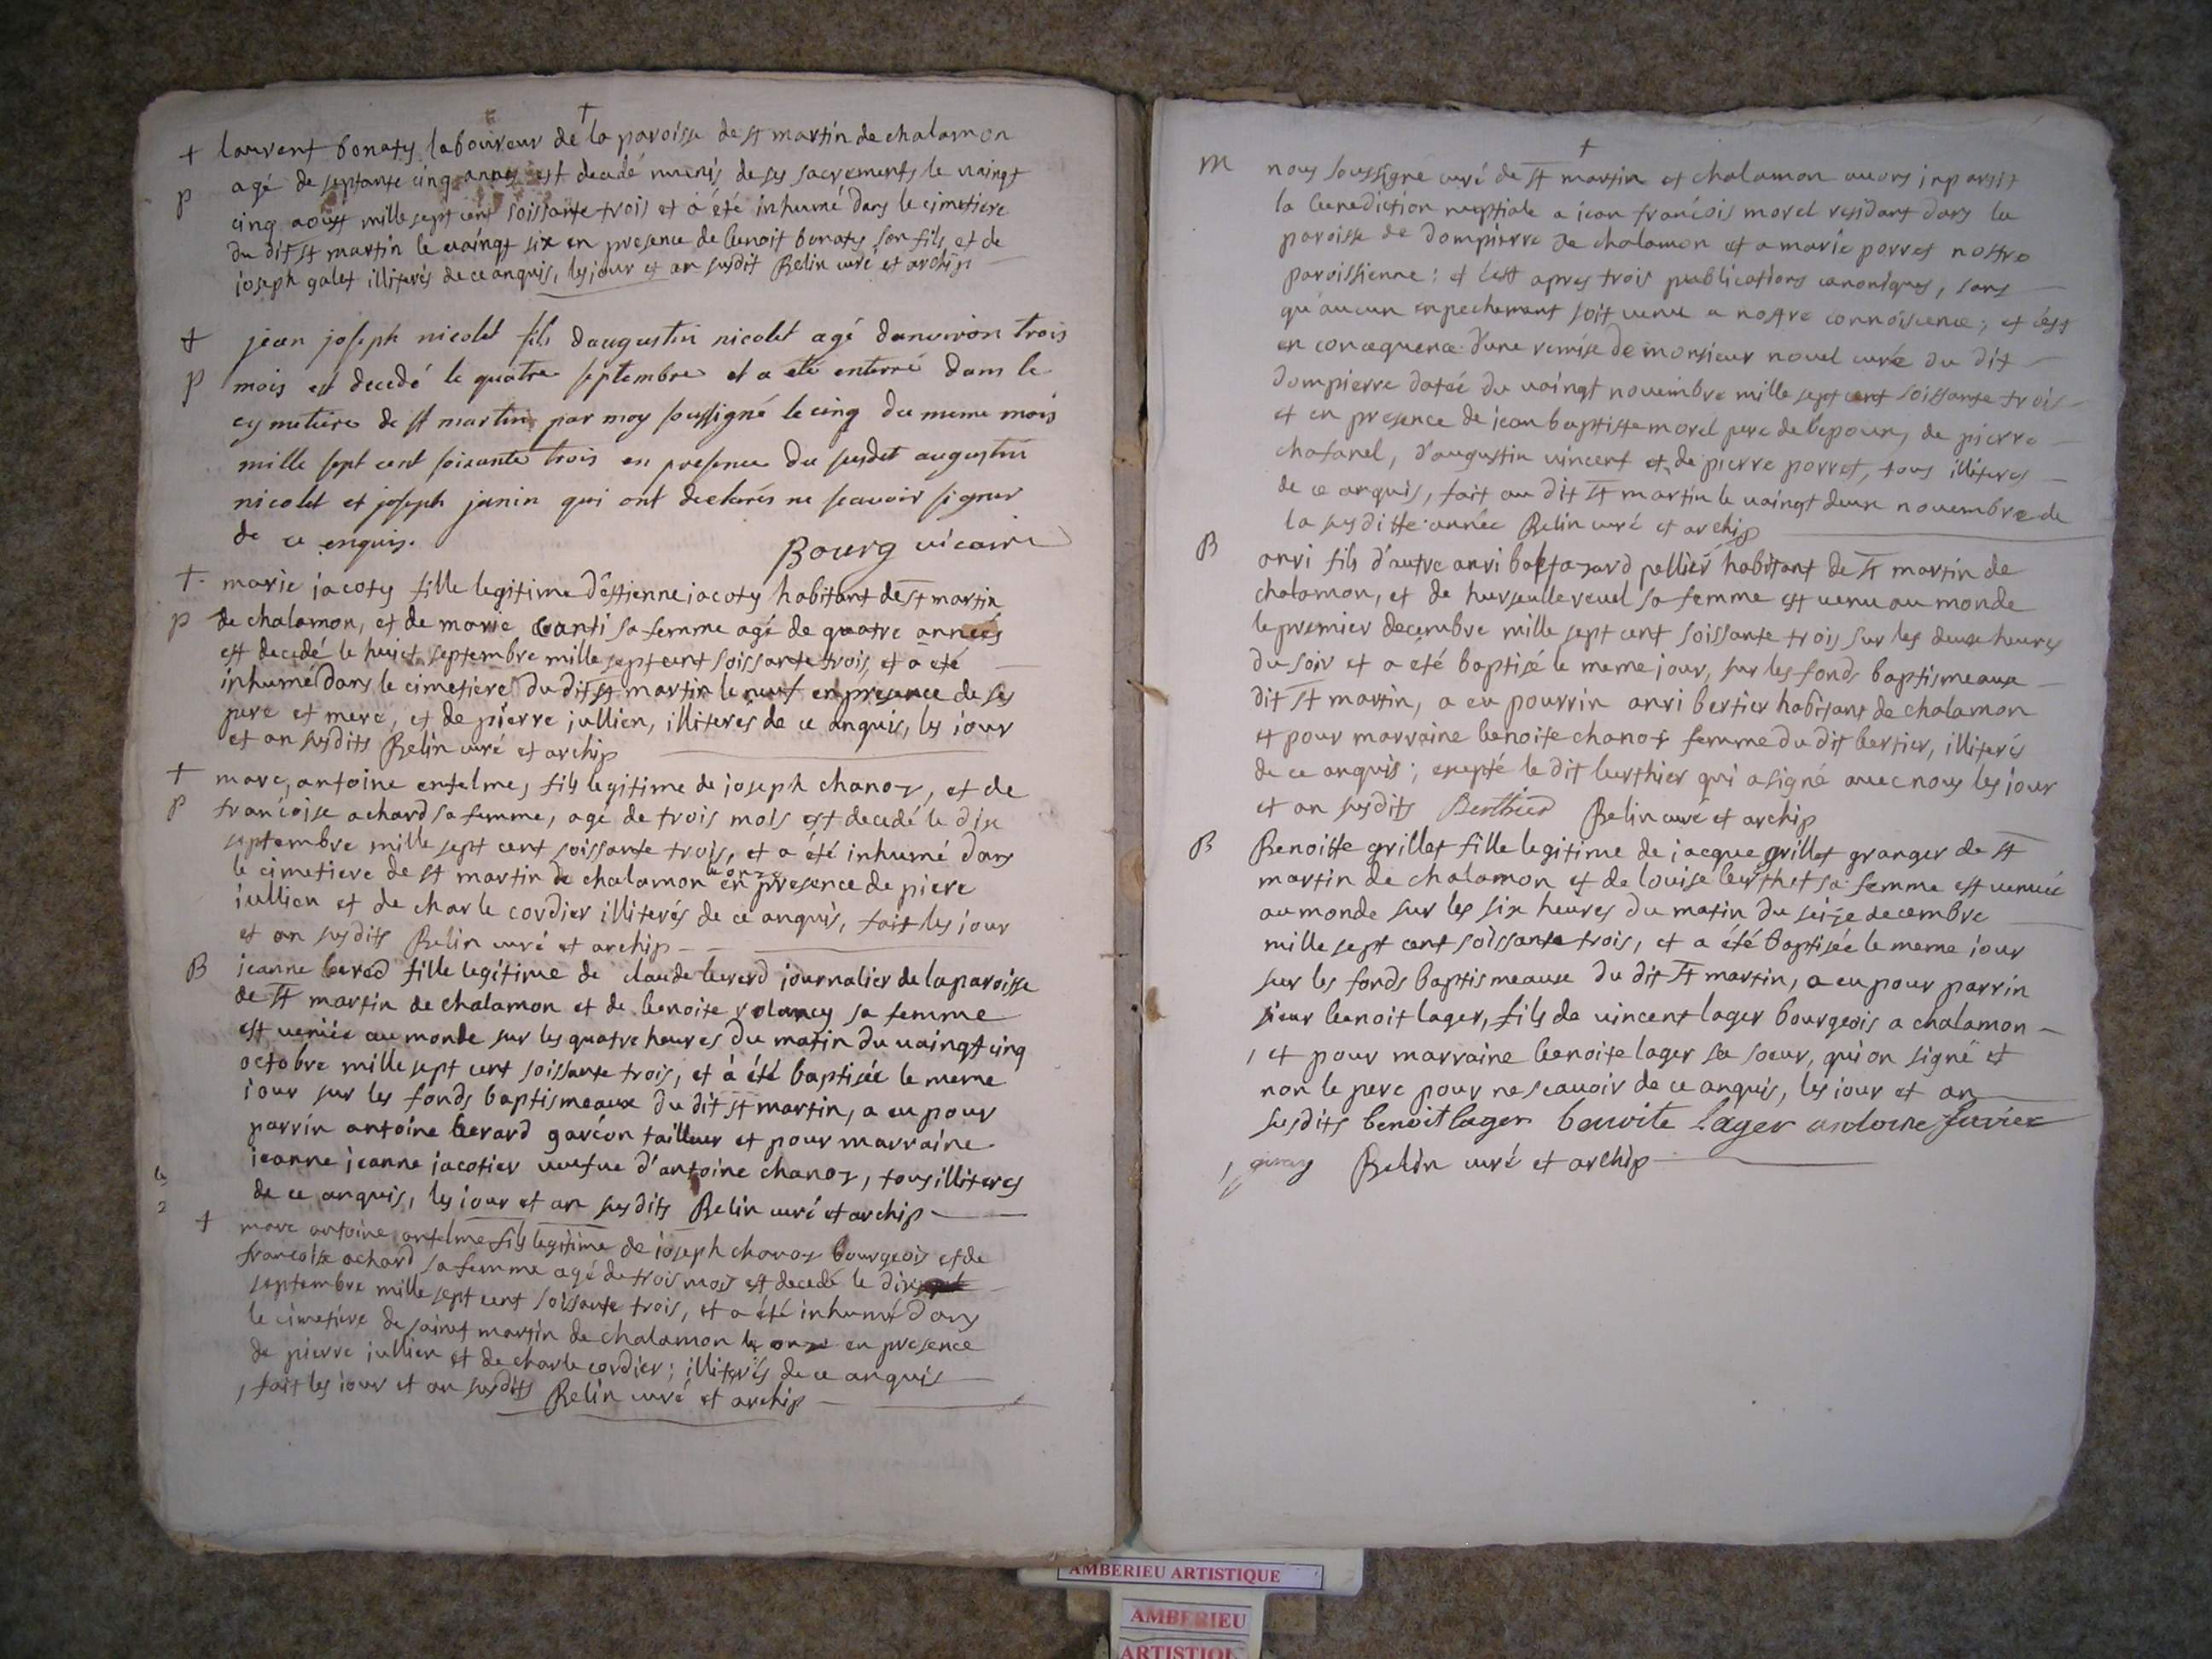 †
† laurent bonaty laboureur de la paroisse de st martin de chalamon
p agé de septante cinq annes est decedé munis de ses sacrements le vaingt
cinq aoust mille sept cent soissante trois et a été inhumé dans le cimetiere
du dit st martin le vaingt six en presence de benoit bonaty son fils et de
joseph galet illiterés de ce anquis, les jour et an susdit Belin curé et archip
† jean joseph nicolet fils daugustin nicolet agé danviron trois
p mois est decedé le quatre septembre et a été enterré dans le
cymetiere de st martin par moy soussigné le cinq du meme mois
mille sept cent soixante trois en presence du susdit augustin
nicolet et joseph janin qui ont declarés ne scavoir signer
de ce enquis. Bourg vicaire
† marie jacoty fille legitime d'estienne jacoty habitant de st martin
p de chalamon, et de marie santi sa femme agé de quatre années
est decedé le huict septembre mille sept cent soissante trois, et a été
inhumé dans le cimetiere du dit st martin le neuf en presance de ses
pere et mere, et de pierre jullien, illiteres de ce anquis, les jour
et an susdits Belin curé et archip
† marc, antoine entelme, fils legitime de joseph chanoz, et de
p francoise achard sa femme, age de trois mois est decedé le dix
septembre mille sept cent soissante trois, et a été inhumé dans
le cimetiere de st martin de chalamon le onze en presence de piere
jullien et de charle cordier illiterés de ce anquis, fait les jour
et an susdits Belin curé et archip
B jeanne berad fille legitime de claude berard journalier de la paroisse
de st martin de chalamon et de benoite volancy sa femme
est venüe au monde sur les quatre heures du matin du vaingt cinq
octobre mille sept cent soissante trois, et à été baptisée le meme
jour sur les fonds baptismeaux du dit st martin, a eu pour
parrin antoine berard garcon tailleur et pour marraine
jeanne jeanne jacotier veufue d'antoine chanoz, tous illiteres
de ce anquis, les jour et an susdits Belin curé et archip
† marc antoine antelme fils legitime de joseph chanoz bourgeois et de
francoise achard sa femme agé de trois mois est decedé le dix
septembre mille sept cent soissante trois, et a été inhumé dans
le cimetiere de sainct martin de chalamon le onze en presence
de pierre jullien et de charle cordier; illiterés de ce anquis
, fait les jour et an susdits Belin curé et archip
†
M nous soussigné curé de st martin et chalamon avons inpartit
la benediction nuptiale a jean francois morel residant dans la
paroisse de dompierre de chalamon et a marie porret nostre
paroissienne; et c'est apres trois publications canoniques, sans
qu'aucun enpechement soit venu a nostre connoiscence; et c'est
en concequence d'une remise de monsieur nouel curé du dit
dompierre datée du vaingt novembre mille sept cent soissante trois
et en presence de jean baptiste morel pere de l'epoux, de pierre
chatanel, d'augustin vincent et de pierre porret, tous illiteres
de ce anquis, fait au dit st martin le vaingt deux novembre de
la susditte année Belin curé et archip
B anri fils d'autre anri baltazard pellier habitant de st martin de
chalamon, et de hurseulle revel sa femme est venu au monde
le premier decembre mille sept cent soissante trois sur les deux heures
du soir et a été baptisé le meme jour, sur les fonds baptismeaux
dit st martin, a eu pourrin anri bertier habitant de chalamon
et pour marraine benoite chanoz femme du dit bertier, illiterés
de ce anquis; exepté le dit berthier qui a signé avec nous les jour
et an susdits Berthier Belin curé et archip
B Benoitte grillet fille legitime de jacque grillet granger de st
martin de chalamon et de louise berthet sa femme est venuée
au monde sur les six heures du matin du seize decembre
mille sept cent soissante trois, et a été baptisée le meme jour
sur les fonds baptismeaux du dit st martin, a eu pour parrin
sieur benoit lager, fils de vincent lager bourgeois a chalamon
, et pour marraine benoite lager sa soeur, qui on signé et
non le pere pour ne scavoir de ce anquis, les jour et an
susdits benoit lager benoite lager antoine
Belin curé et archip
AMBERIEU ARTISTIQUE
AMBERIEU
ARTISTIQU